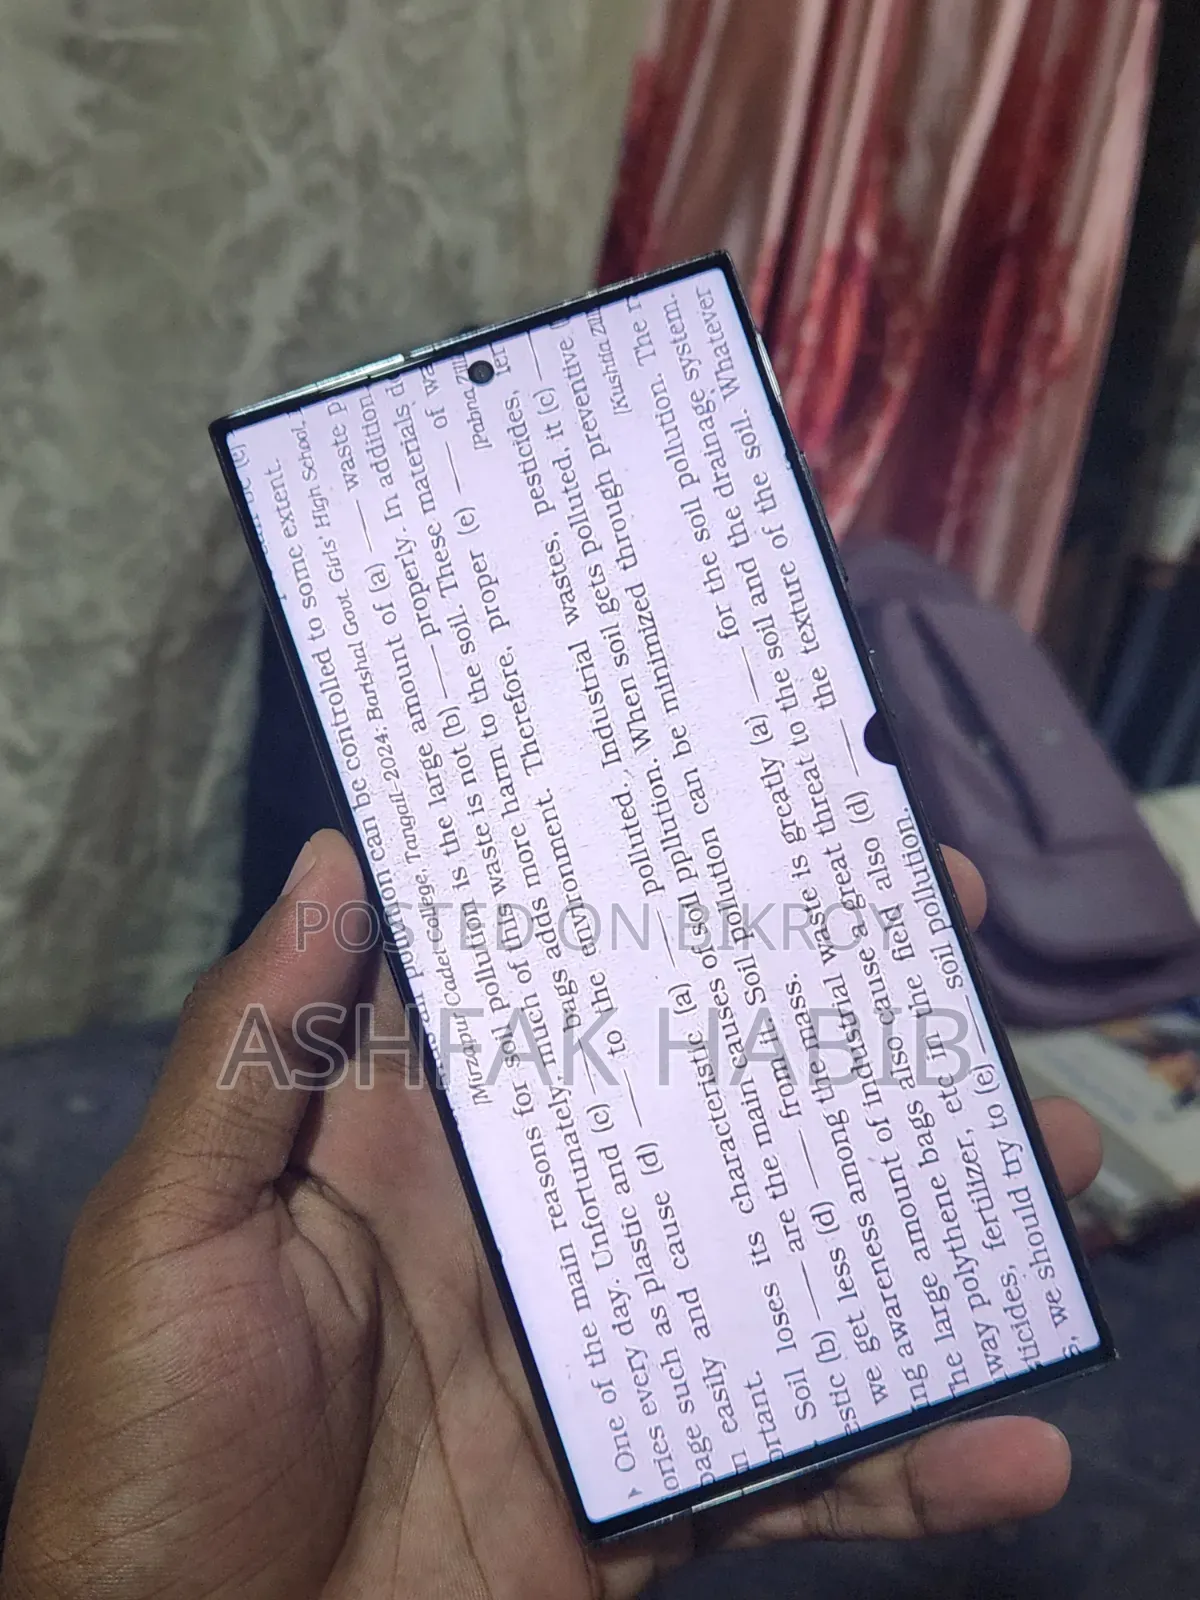 pollution can be controlled to some extent.
[Mirzapur Cadet College, Tangail-2024; Barishal Govt. Girls' High School,
pollution is the large amount of (a) — waste
One of the main reasons for soil pollution is the large amount of (a) — waste
ories every day. Unfortunately, much of this waste is not (b) — properly. In addition,
page such as plastic and (c) — bags adds more harm to the soil. These materials
easily and cause (d) — to the environment. Therefore, proper (e) — of
ortant.
[Pabna
Soil loses its characteristic (a) — polluted. Industrial wastes, pesticides,
estic (b) — are the main causes of soil pollution. When soil gets polluted, it (c) —
we get less (d) — from it. Soil pollution can be minimized through preventive
ing awareness among the mass.
[Kushtia
The large amount of industrial waste is greatly (a) — for the soil pollution. The
away polythene bags also cause a great threat to the soil and the drainage system.
ticides, fertilizer, etc in the field also (d) — the texture of the soil. Whatever
we should try to (e) — soil pollution.
POSTED ON BIKROY
ASHFAK HABIB